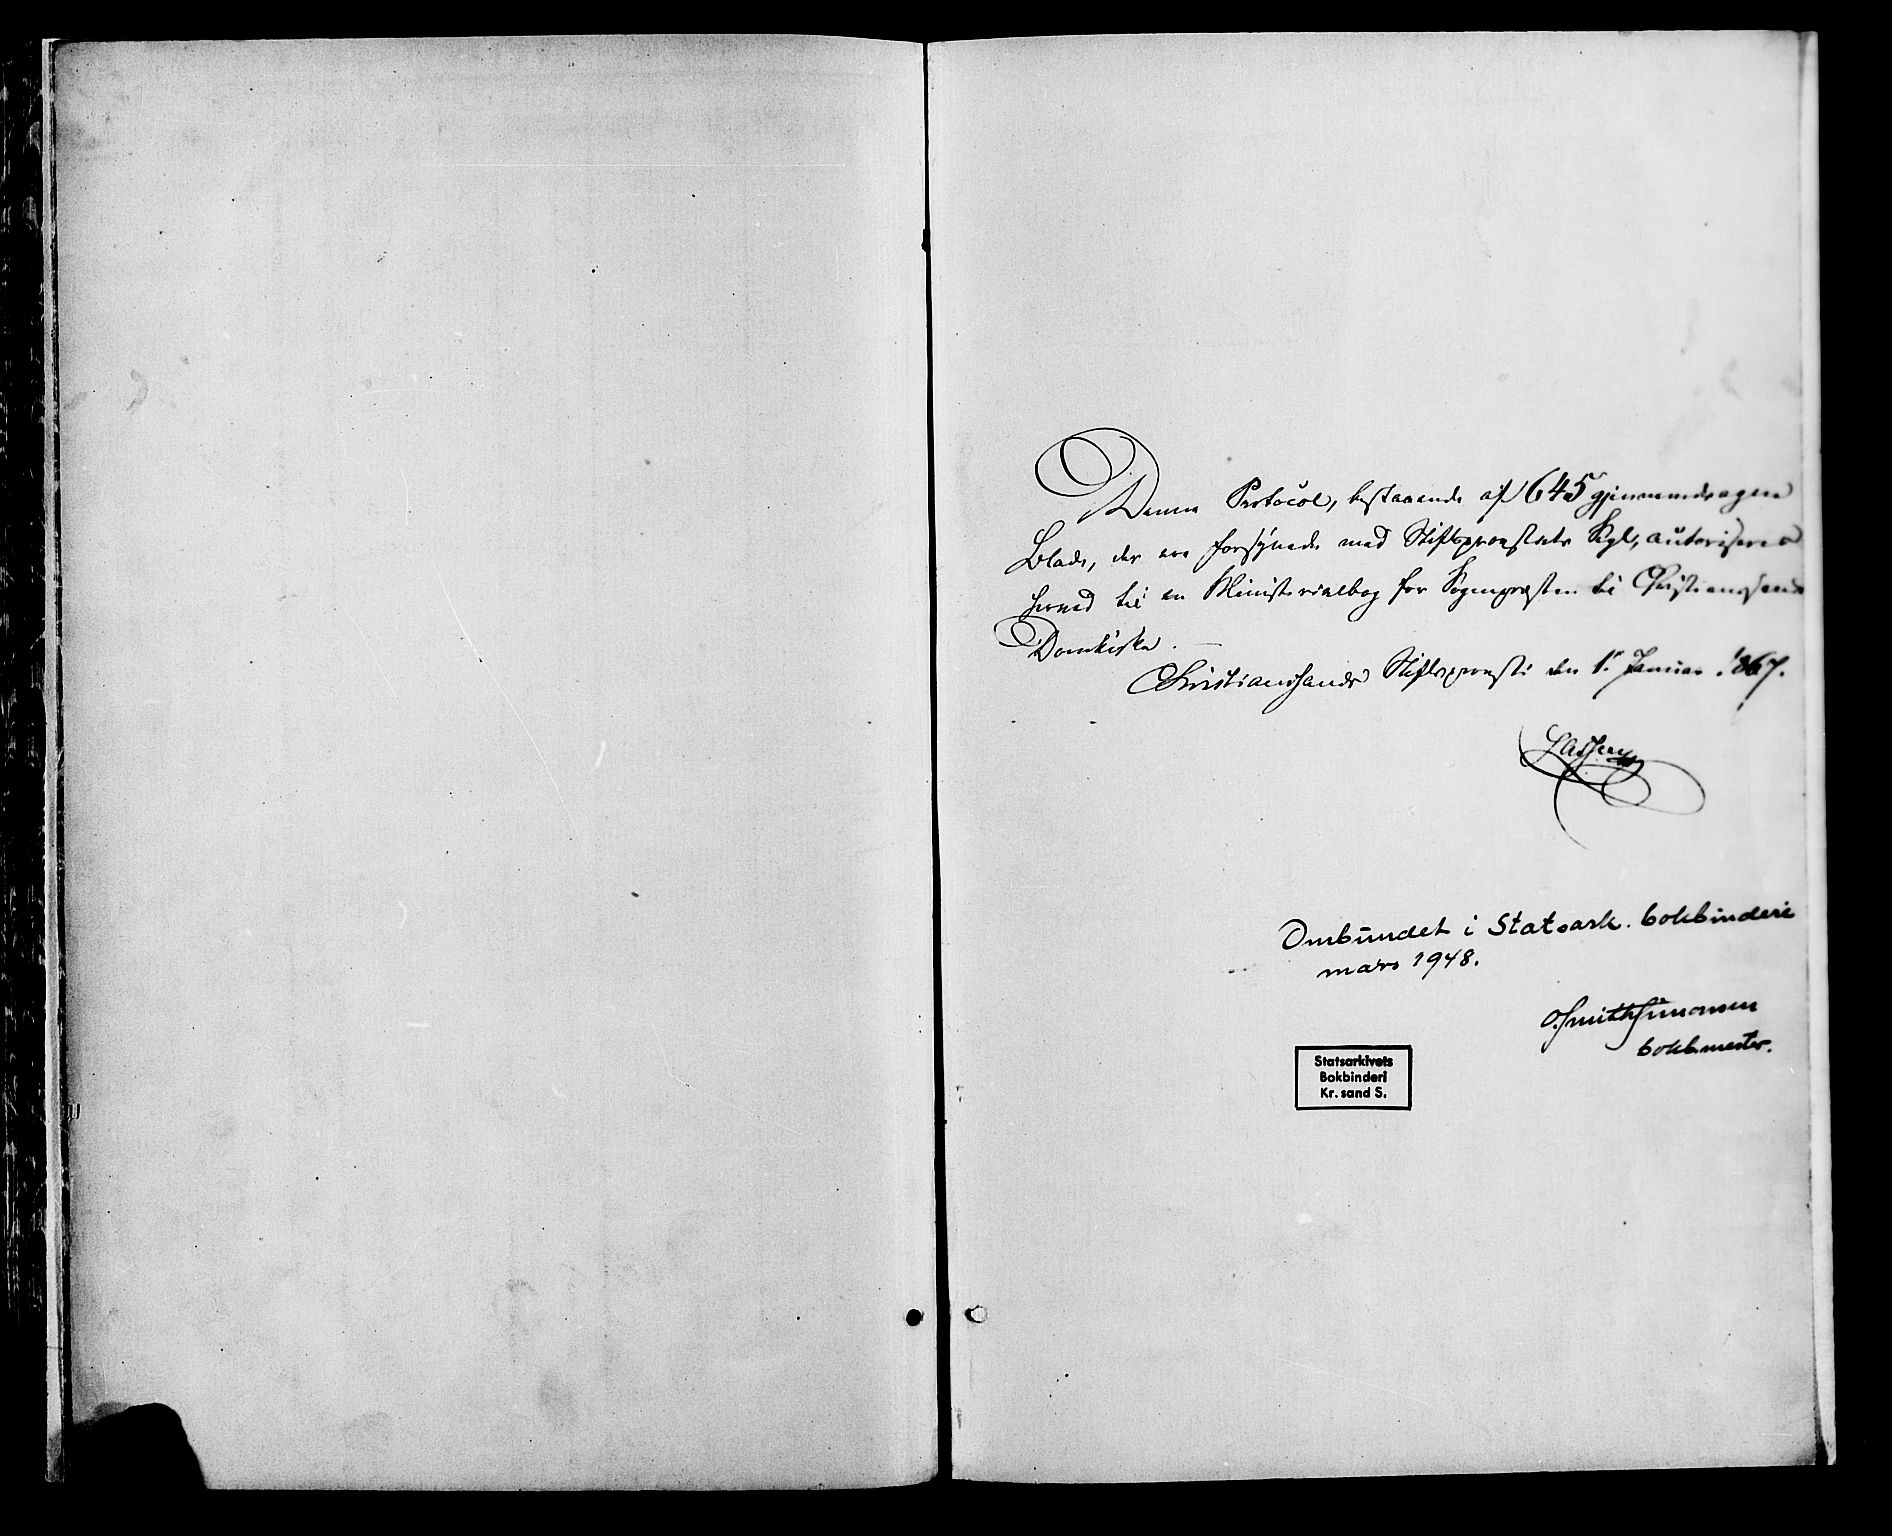 Denne Protocol, bestaaende af 645 gjennemdragne
Blade, der ere forsynede med Stiftsprovstiets Segl, autoriseres
herved til en Ministerialbog for Sognepræsten til Christianssands
Domkirke.
Christianssands Stiftsprovsti den 1ste Januar 1867.
Lassen
Ombundet i Statsark. bokbinderi
mars 1948.
O. Smith Simonsen
bokb.mester.
Statsarkivets
Bokbinderi
Kr. sand S.